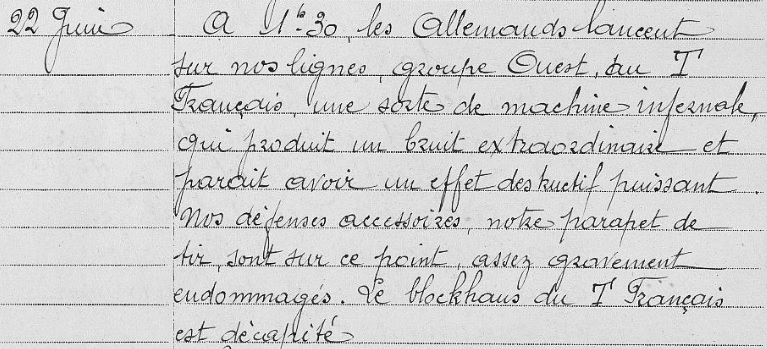 22 Juin A 1h30, les Allemands lancent
sur nos lignes, groupe Ouest, du T
Français, une sorte de machine infernale,
qui produit un bruit extraordinaire et
parait avoir un effet destructif puissant.
Nos défenses accessoires, notre parapet de
tir, sont sur ce point, assez gravement
endommagés. Le blockhaus du T Français
est décapité